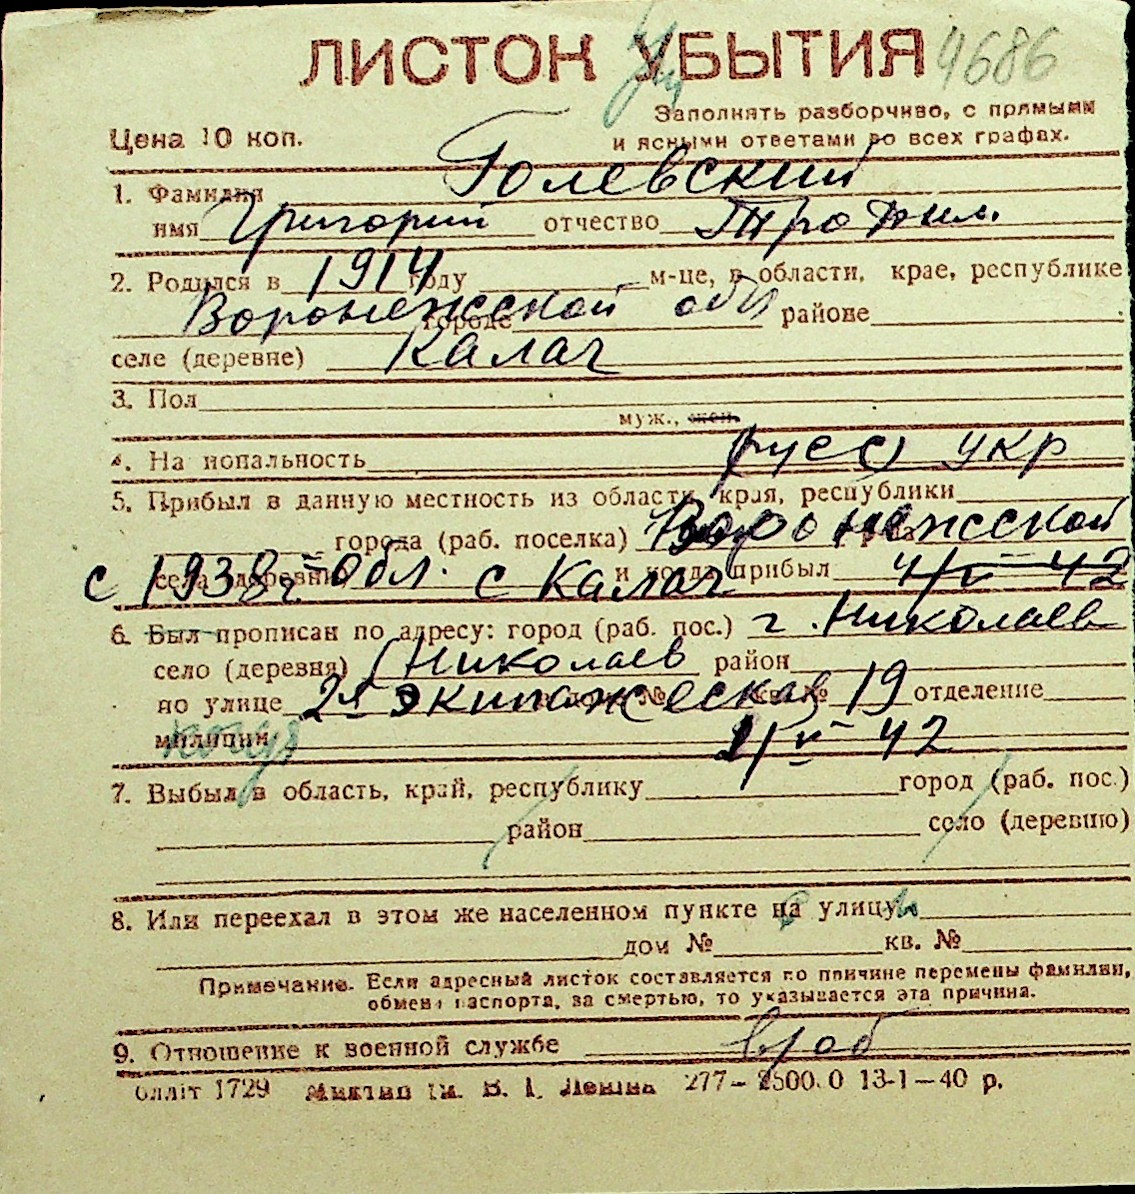 ЛИСТОК УБЫТИЯ 4686
Заполнять разборчиво, с прямыми
Цена 10 коп. и ясными ответами во всех графах.
1. Фамилия Голевский
имя Григорий отчество Трофим.
2. Родился в 1914 году м-це, в области, крае, республике
Воронежской обл городе районе
селе (деревне) Калач
3. Пол
муж., жен.
4. На иопальность (русс) укр
5. Прибыл в данную местность из области, края, республики
города (раб. поселка) Воронежской
с 1938 г. обл. с Калач и когда прибыл 4/IV-42
6. Был прописан по адресу: город (раб. пос.) г. Николаев
село (деревня) Николаев район
по улице 2я Экипажеская № 19 отделение
милиции 2/V-42
7. Выбыл в область, край, республику город (раб. пос.)
район село (деревню)
8. Или переехал в этом же населенном пункте на улицу
дом № кв. №
Примечание. Если адресный листок составляется по причине перемены фамилии,
обмена паспорта, за смертью, то указывается эта причина.
9. Отношение к военной службе
Облліт 1729 им. В. І. Леніна 277— 13-1—40 р.